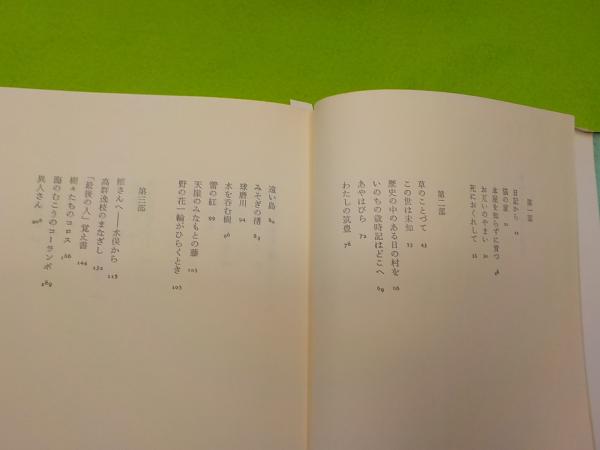 第一部
日記から 11
猫の家 21
本屋を知らずに育つ 28
お互いのやまい 31
死におくれして 35
第二部
草のことづて 43
この世は未知 53
歴史の中のある日の村を 56
いのちの歳時記はどこへ 69
あやはびら 72
わたしの筑豊 76
遠い島 80
みそぎの渚 83
球磨川 94
水を呑む樹 96
雷の紅 99
天崖のみなもとの藤 103
野の花一輪がひらくとき 105
第三部
郁さんへ——水俣から 118
高群逸枝のまなざし 132
「最後の人」覚え書 144
樹々たちのコロス 166
海のむこうのコーランボ 189
異人さん 206